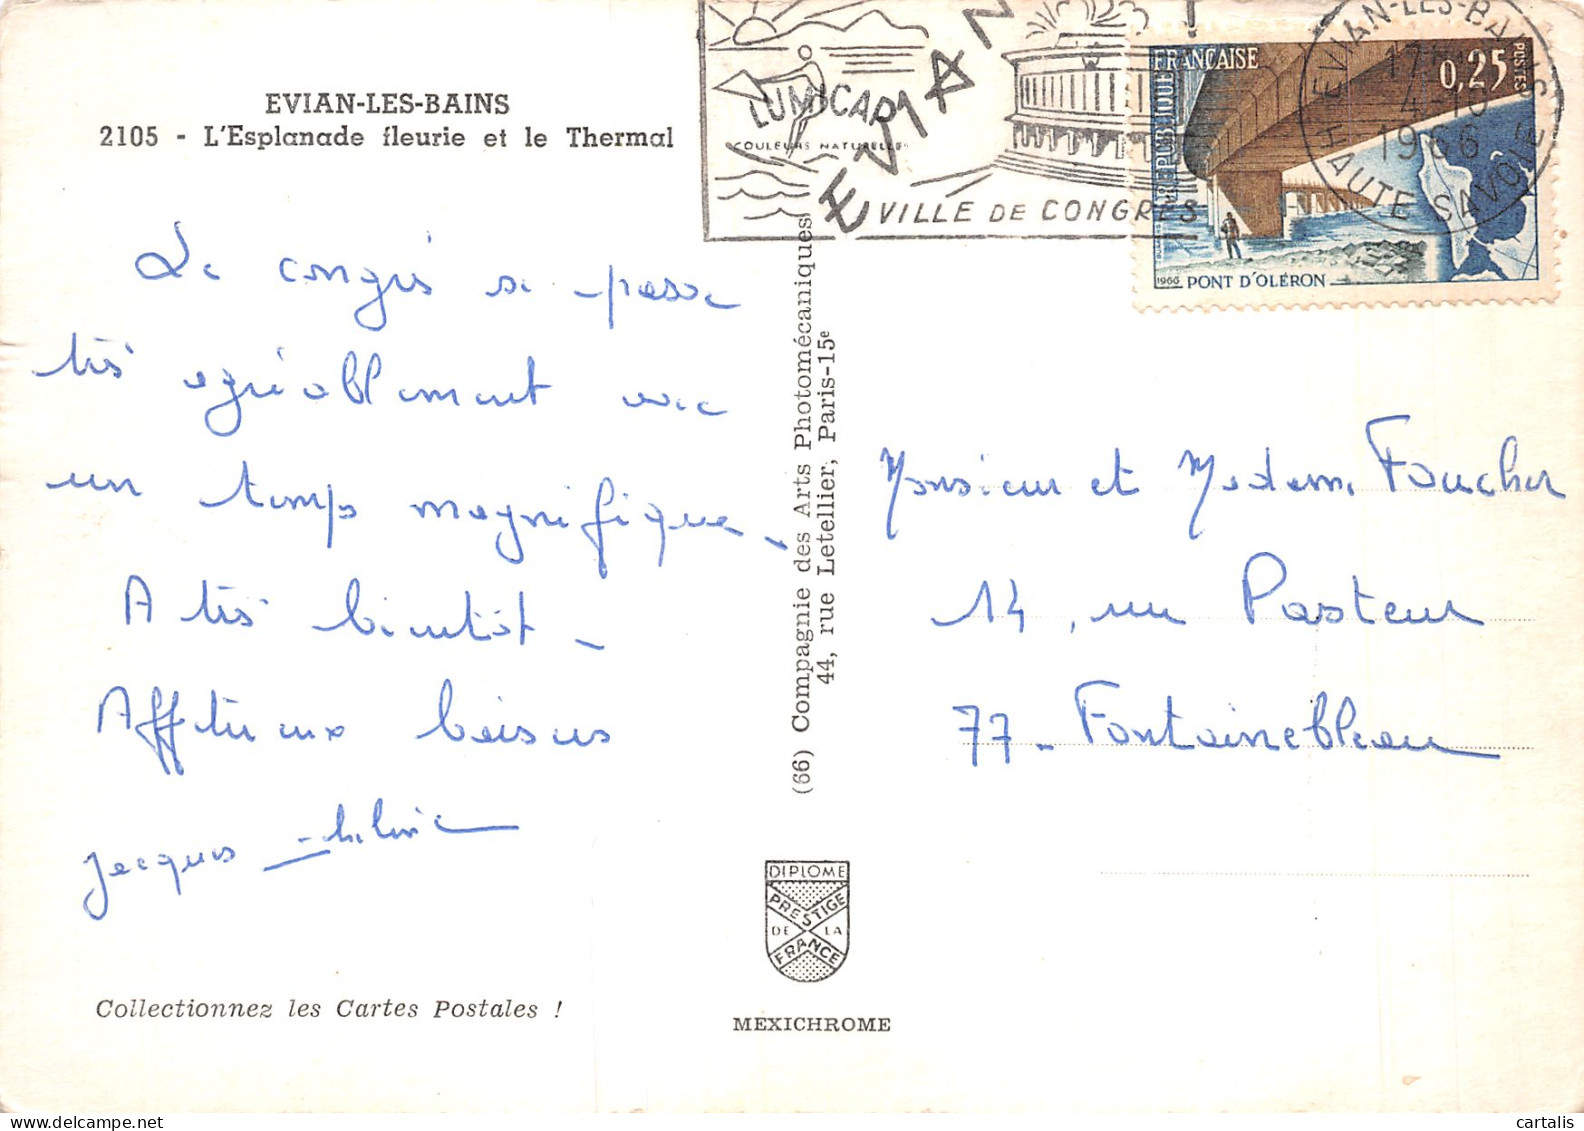 EVIAN-LES-BAINS
2105 - L'Esplanade fleurie et le Thermal
Le congrès se passe
très agréablement avec
un temps magnifique -
A très bientôt -
Affectueux baisers
Jacques -
Collectionnez les Cartes Postales !
LUMICAP
COULEURS NATURELLES
EVIAN !
VILLE DE CONGRÈS
RÉPUBLIQUE FRANÇAISE
0,25
POSTES
1966 PONT D'OLÉRON
EVIAN-LES-BAINS
17
4-10
1966
HAUTE SAVOIE
(66) Compagnie des Arts Photomécaniques
44, rue Letellier, Paris-15e
Monsieur et Madame Foucher
14, rue Pasteur
77 - Fontainebleau
DIPLOME
PRESTIGE
DE LA
FRANCE
MEXICHROME
cartalis
delcampe.net